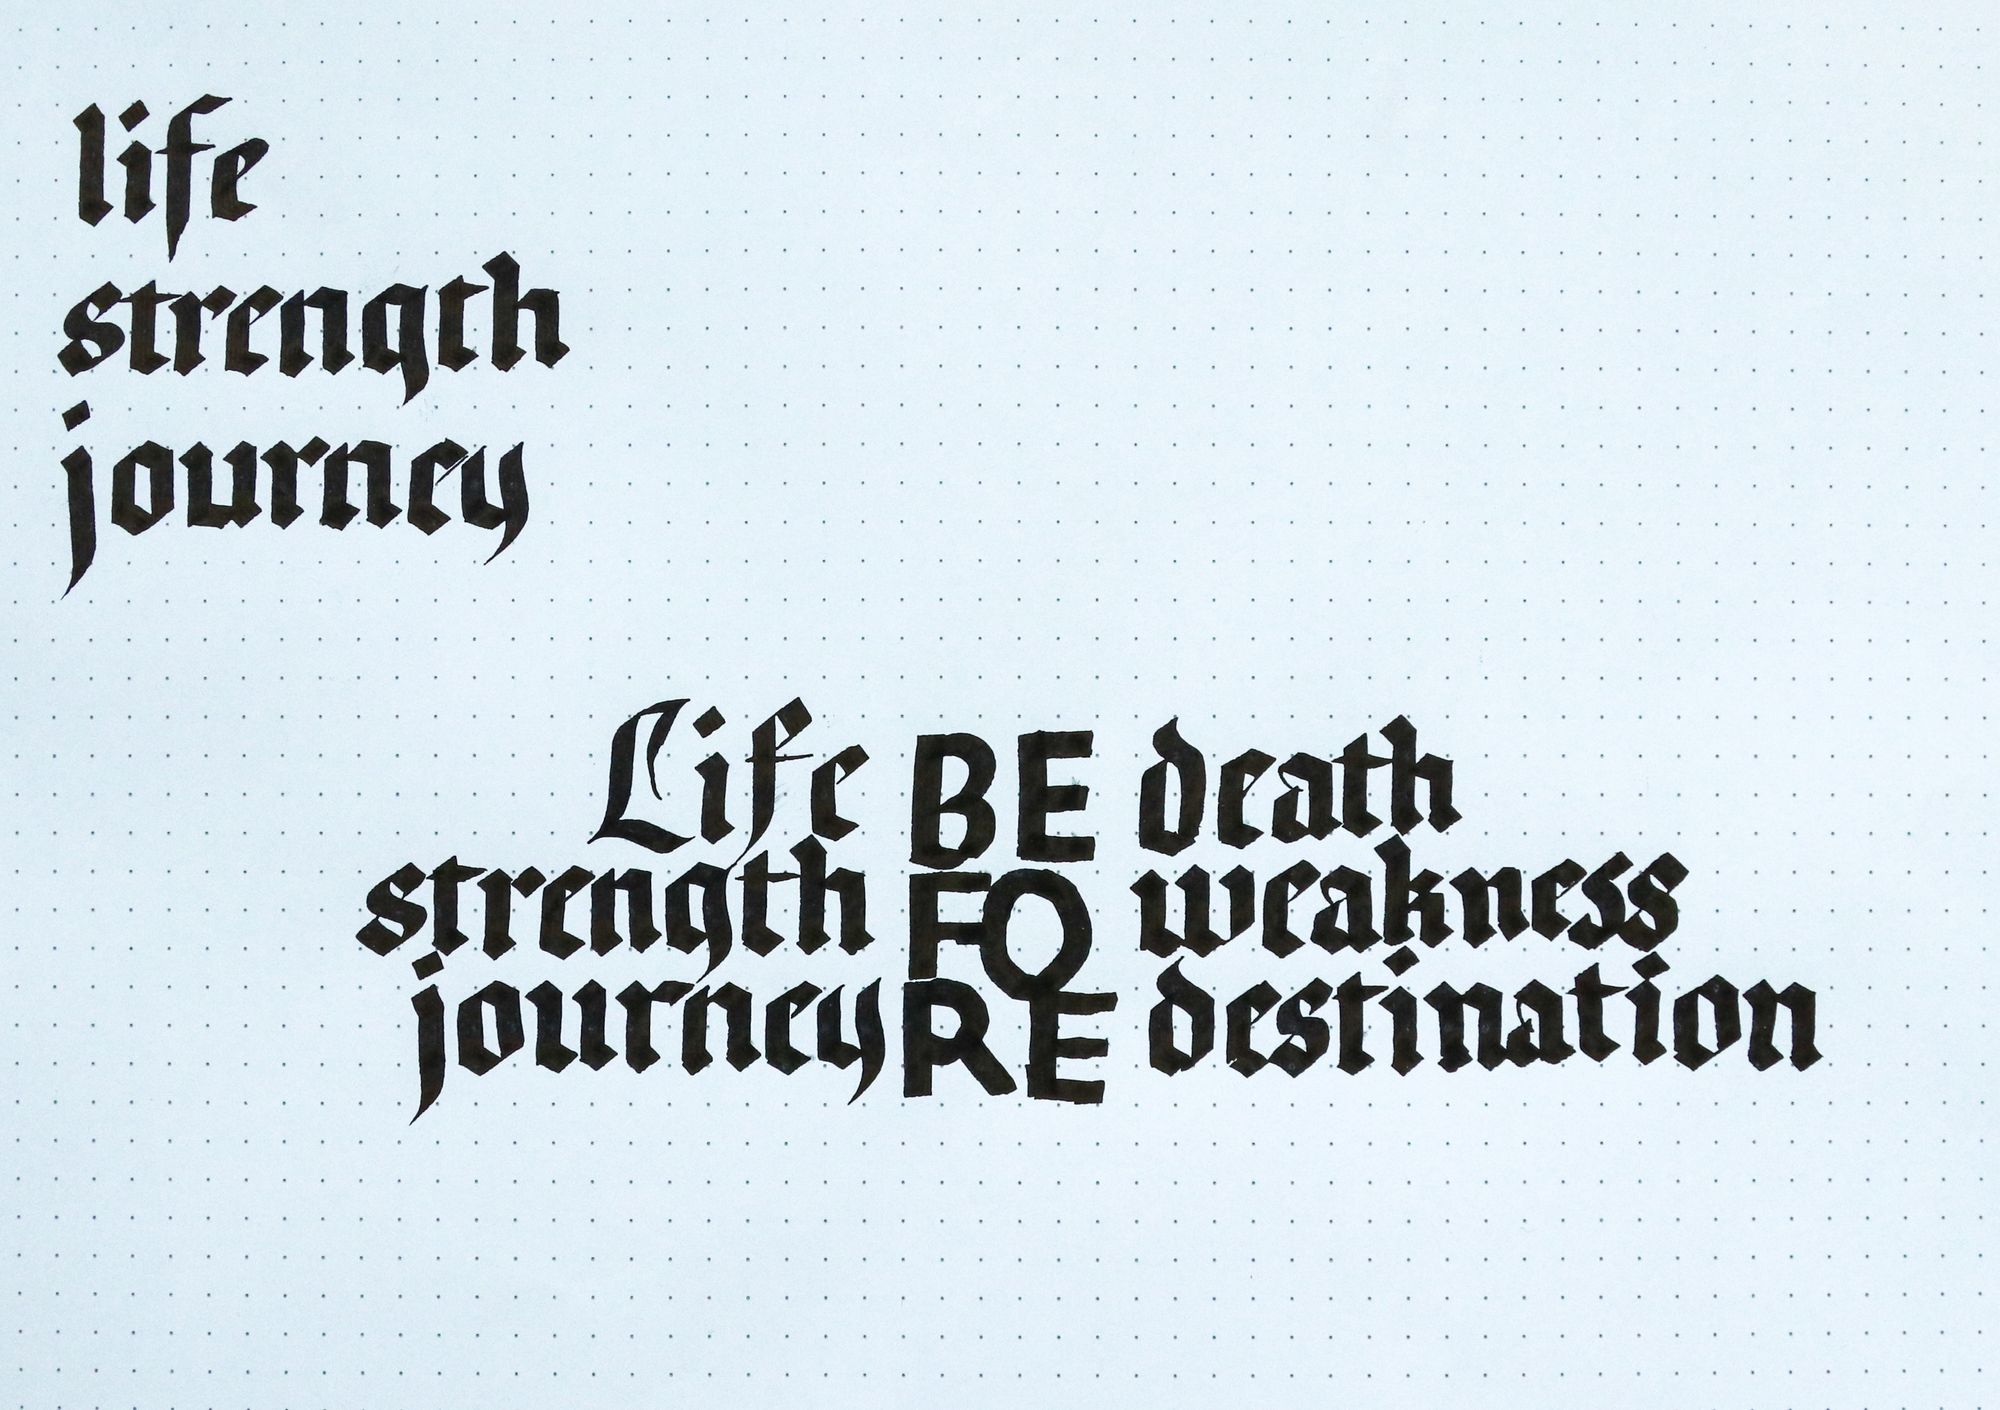 life
strength
journey
Life BE death
strength FO weakness
journey RE destination